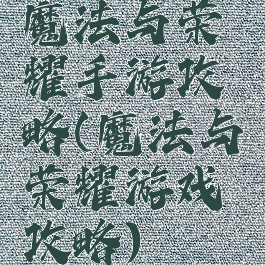 魔法与荣
耀手游攻
略(魔法与
荣耀游戏
攻略)